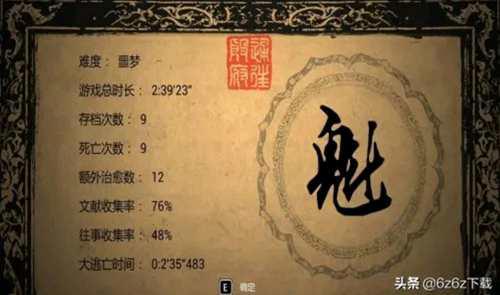 难度： 噩梦
游戏总时长： 2:39'23"
存档次数： 9
死亡次数： 9
额外治愈数： 12
文献收集率： 76%
往事收集率： 48%
大逃亡时间： 0:2'35"483
E 确定
头条 @6z6z下载